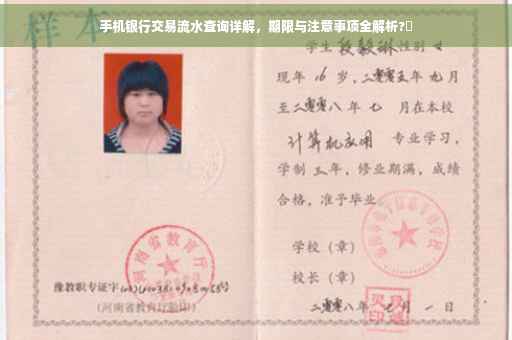 手机银行交易流水查询详解，期限与注意事项全解析?
样本
学生段毅琳性别女
现年16岁，二零零五年九月
至二零零八年七月在本校
计算机应用 专业学习，
学制三年，修业期满，成绩
合格，准予毕业。
学校（章）
校长（章）
二零零八年七月一日
河南省教育厅
豫教职专证字
(河南省教育厅验印)